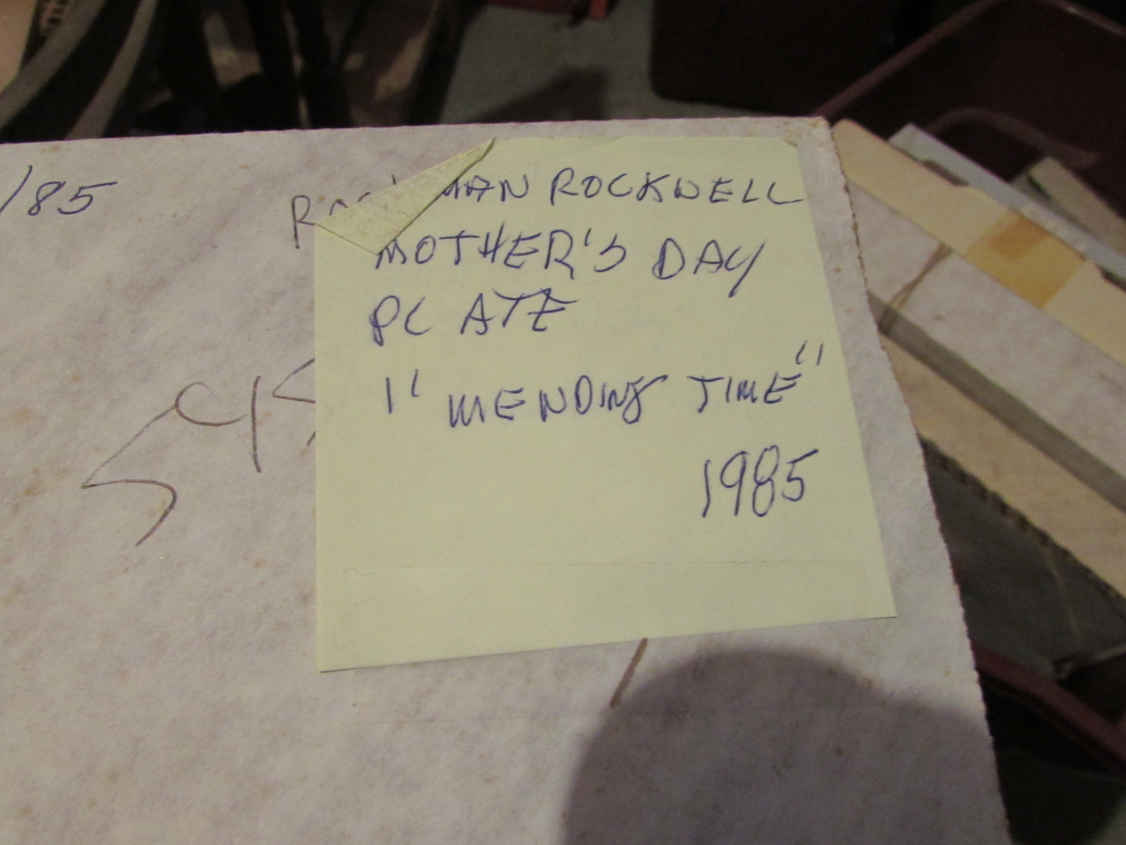 /85
MAN ROCKWELL
MOTHER'S DAY
PLATE
" MENDING TIME"
1985